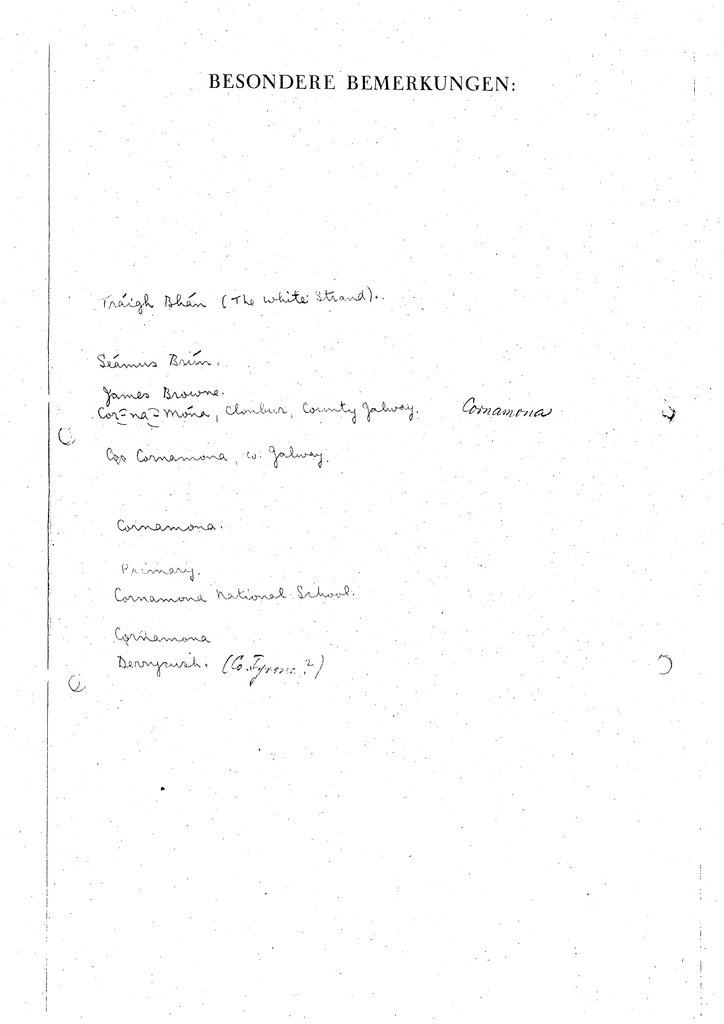 BESONDERE BEMERKUNGEN:
Tráigh Bhán (The White Strand).
Séamus Brún.
James Browne.
Cor-na-Móna, Clonbur, County Galway. Cornamona
Cornamona, Co. Galway.
Cornamona.
Primary.
Cornamona National School.
Cornamona
(Co. Tyrone?)